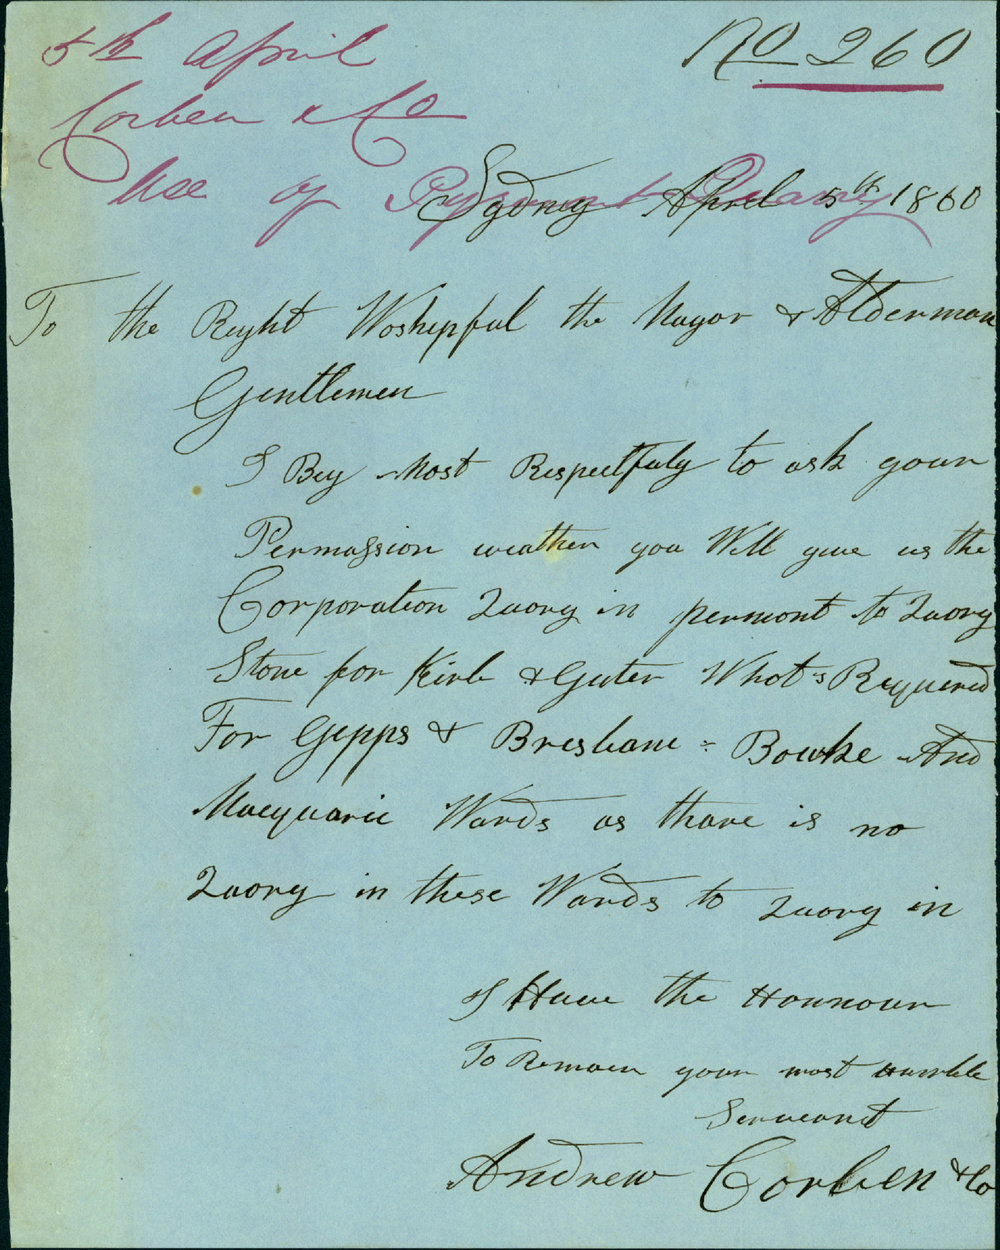 5th April
No 260
Corben & Co
Use of Pyrmont Quarry
Sydney April 5th 1860
To the Right Woshepful the Mayor & Alderman
Gentlemen
I Beg Most Respectfuly to ask your
Permassion weather you Will give us the
Corporation Quory in permont to Quory
Stone for Kirb & Guter What's Requered
For Gepps & Bresbane = Bowke And
Macquarie Wards as thare is no
Quory in these Wards to Quory in
I Have the Honnour
To Remain your most Humble
Servannt
Andrew Corben & Co